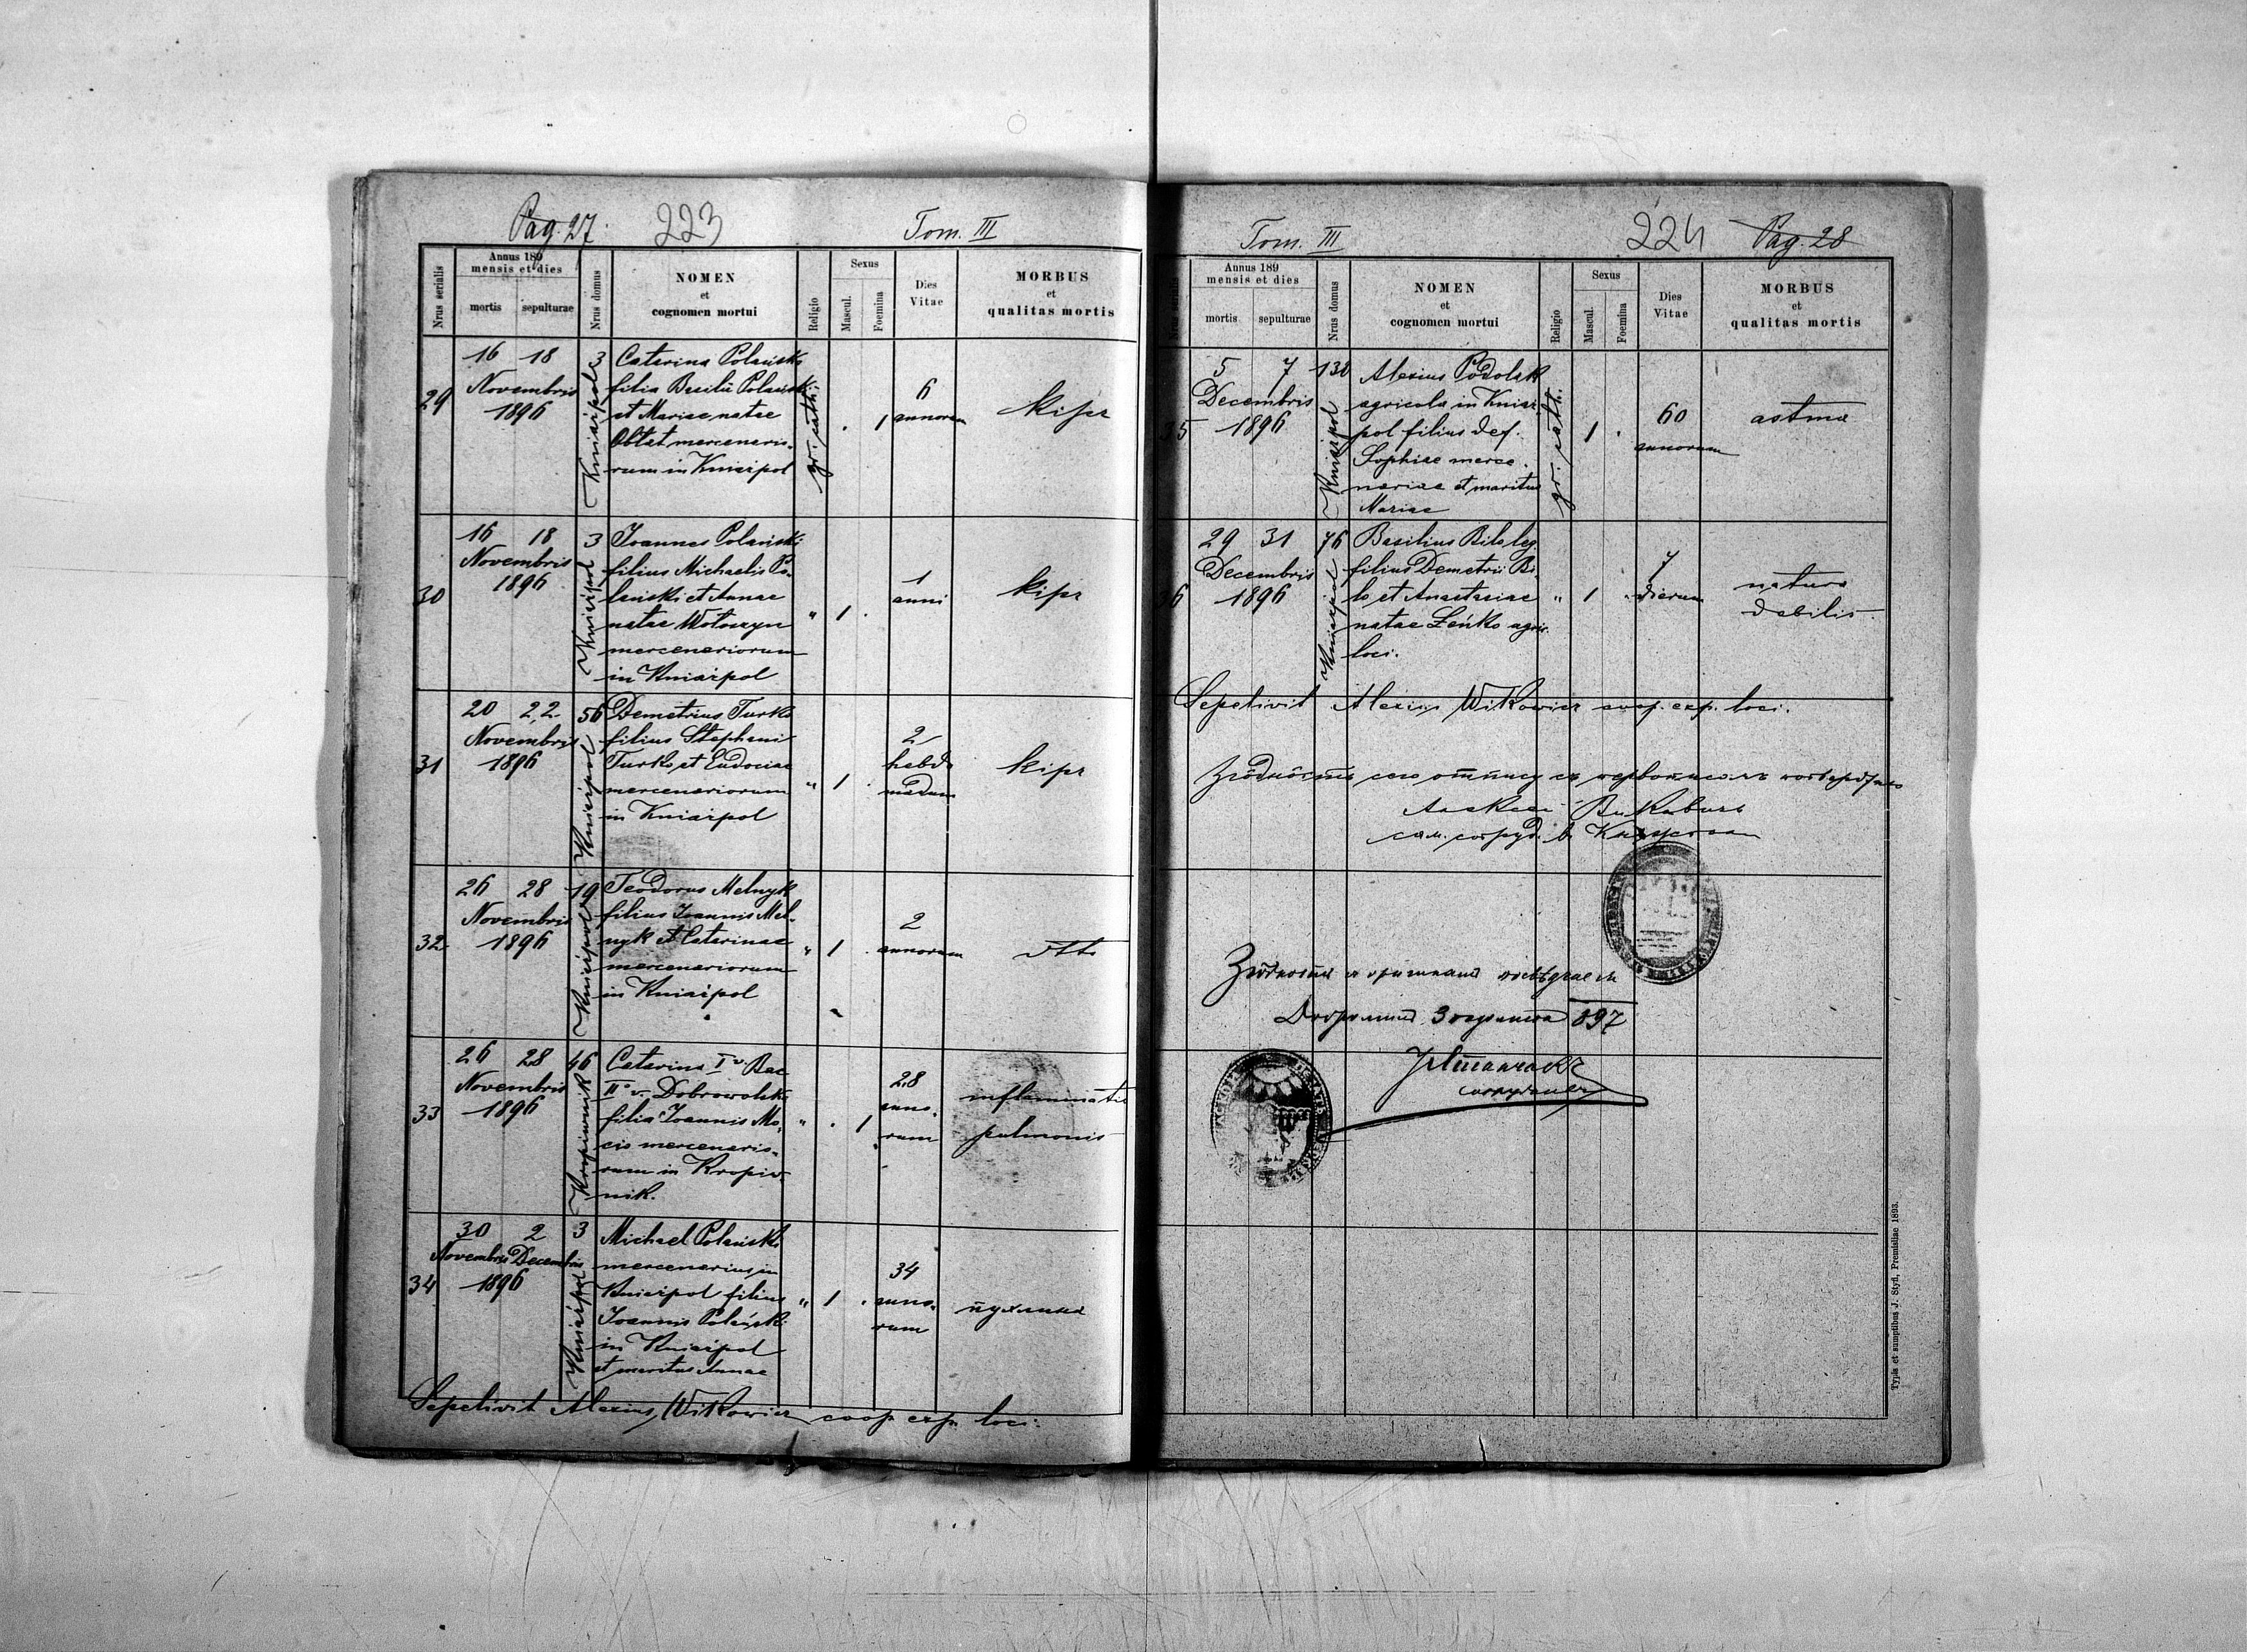 Pag. 27. 223 Tom. III
Nrus serialis
Annus 189
mensis et dies
mortis sepulturae
Nrus domus
NOMEN
et
cognomen mortui
Religio
Sexus
Mascul. Foemina
Dies
Vitae
MORBUS
et
qualitas mortis
29
16 18
Novembris
1896
3
Kniaźpol
Catarina Polański
filia Basilii Polański
et Mariae natae
mercenario-
rum in Kniaźpol
gr. cath.
. 1
6
annorum
kipr
30
16 18
Novembris
1896
3
Kniaźpol
Joannes Polański
filius Michaelis Po-
lański et Annae
natae Wołoszyn
mercenariorum
in Kniaźpol
" 1 .
1
anni
kipr
31
20 22
Novembris
1896
56
Kniaźpol
Demetrius Turko
filius Stephani
Turko et Eudociae
mercenariorum
in Kniaźpol
" 1 .
2
hebdo
madum
kipr
32
26 28
Novembris
1896
19
Kniaźpol
Teodorus Melnyk
filius Joannis Mel-
nyk et Catarinae
mercenariorum
in Kniaźpol
" 1 .
2
annorum
33
26 28
Novembris
1896
46
Kropiwnik
Catarina I v. Bac
II v. Dobrowolski
filia Joannis Mo-
cio mercenario-
rum in Kropiw-
nik.
" . 1
28
anno-
rum
inflammatio
pulmonis
34
30 2
Novembris Decembris
1896
3
Kniaźpol
Michael Polański
mercenarius in
Kniaźpol filius
Joannis Polański
in Kniaźpol
et maritus Annae
" 1 .
34
anno-
rum
пухлина
Sepelivit Alexius Witkowicz coop. exp. loci.
Tom. III 224 Pag. 28
Nrus serialis
Annus 189
mensis et dies
mortis sepulturae
Nrus domus
NOMEN
et
cognomen mortui
Religio
Sexus
Mascul. Foemina
Dies
Vitae
MORBUS
et
qualitas mortis
35
5 7
Decembris
1896
130
Kniaźpol
Alexius Podolak
agricola in Kniaź-
pol filius def.
Sophiae merce-
nariae et maritus
Mariae
gr. cath.
1 .
60
annorum
astma
36
29 31
Decembris
1896
76
Kniaźpol
Basilius Bilo leg.
filius Demetrii Bi-
lo et Anastasiae
natae Łeńko agric.
loci.
" 1 .
7
dierum
natura
debilis
Sepelivit Alexius Witkowicz coop. exp. loci.
Зго̂дно̂сть сего отпису съ первописомъ
сам. сотруд. в
897
Typis et sumptibus J. Styfi, Premisliae 1893.